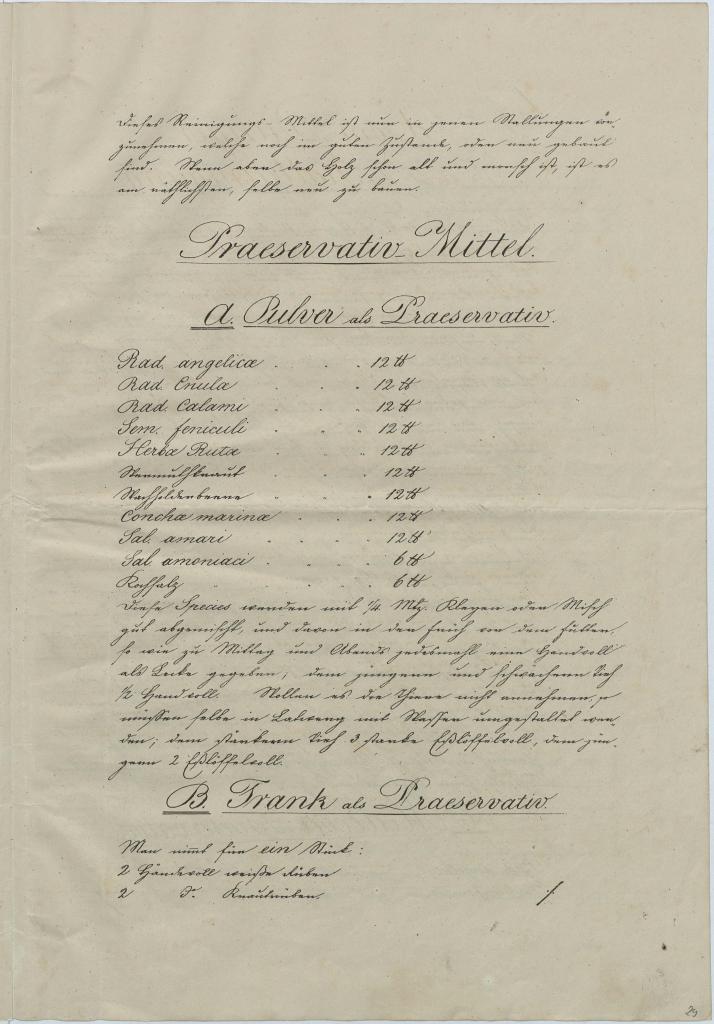 Dieses Reinigungs-Mittel ist nun in jenen Stallungen vor
zunehmen, welche noch im guten Zustande, oder neu gebaut
sind. Wenn aber das Holz schon alt und morsch ist, ist es
am räthlichsten, selbe neu zu bauen.
Praeservativ-Mittel.
A. Pulver als Praeservativ.
Rad. angelicæ . . . 12 ℔
Rad. Enulæ . . . 12 ℔
Rad. Calami . . . 12 ℔
Sem. feniculi . . . 12 ℔
Herbæ Rutæ . . . 12 ℔
Wermuthkraut . . . 12 ℔
Wachholderbeere . . . 12 ℔
Conchæ marinæ . . . 12 ℔
Sal. amari . . . 12 ℔
Sal. amoniaci . . . 6 ℔
Kochsalz . . . 6 ℔
Diese Species werden mit ¼ Mtz. Kleyen oder Misch
gut abgemischt, und davon in der Früh vor dem Futter,
so wie zu Mittag und Abends jedesmahl eine Handvoll
als Lecke gegeben; dem jüngern und schwächern Vieh
½ Handvoll. Wollen es die Thiere nicht annehmen, so
müssen selbe in Latwerg mit Wasser umgestaltet wer
den; dem starkern Vieh 3 starke Eßlöffelvoll, dem jün
gern 2 Eßlöffelvoll.
B. Trank als Praeservativ
Man nimt für ein Stück:
2 Händevoll weiße Rüben
2 d. Krautrüben.
29